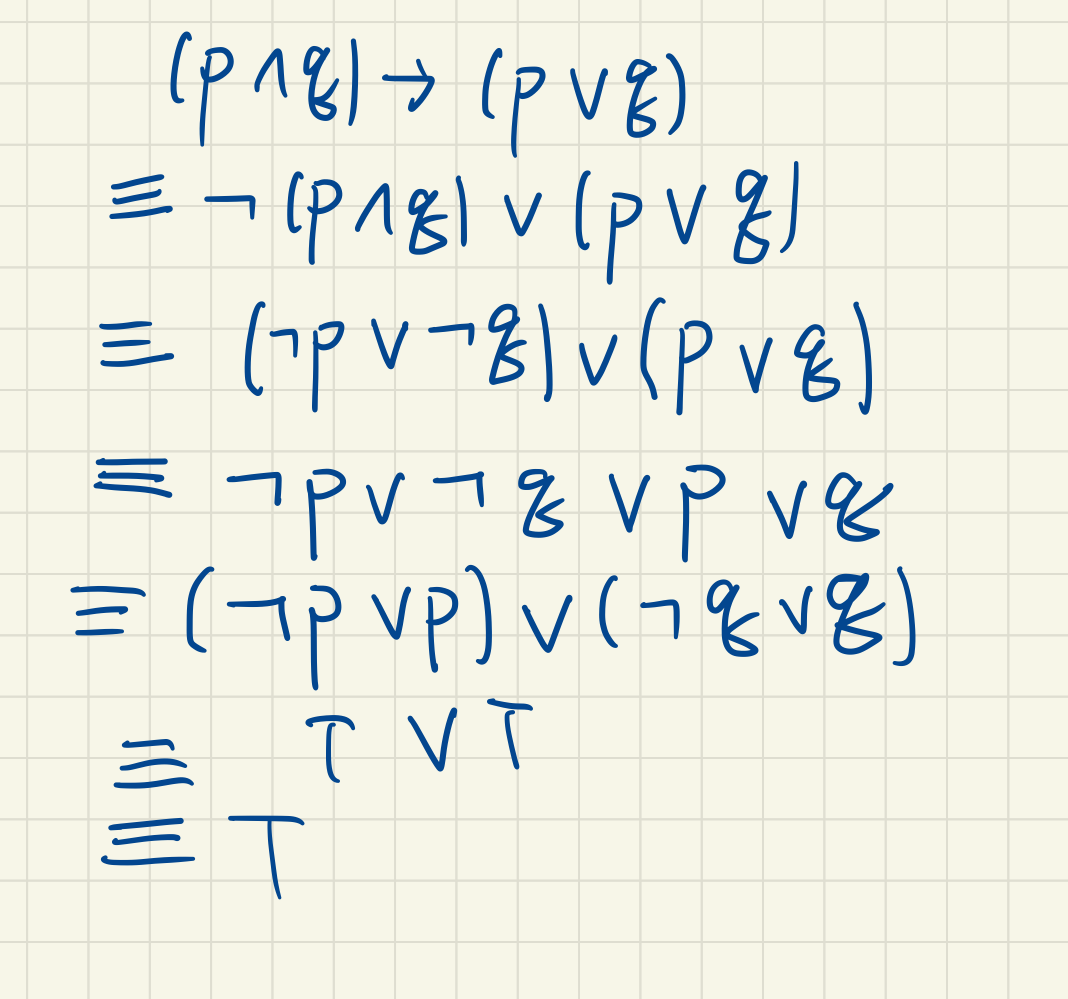 (p ∧ q) → (p ∨ q)
≡ ¬(p ∧ q) ∨ (p ∨ q)
≡ (¬p ∨ ¬q) ∨ (p ∨ q)
≡ ¬p ∨ ¬q ∨ p ∨ q
≡ (¬p ∨ p) ∨ (¬q ∨ q)
≡ T ∨ T
≡ T